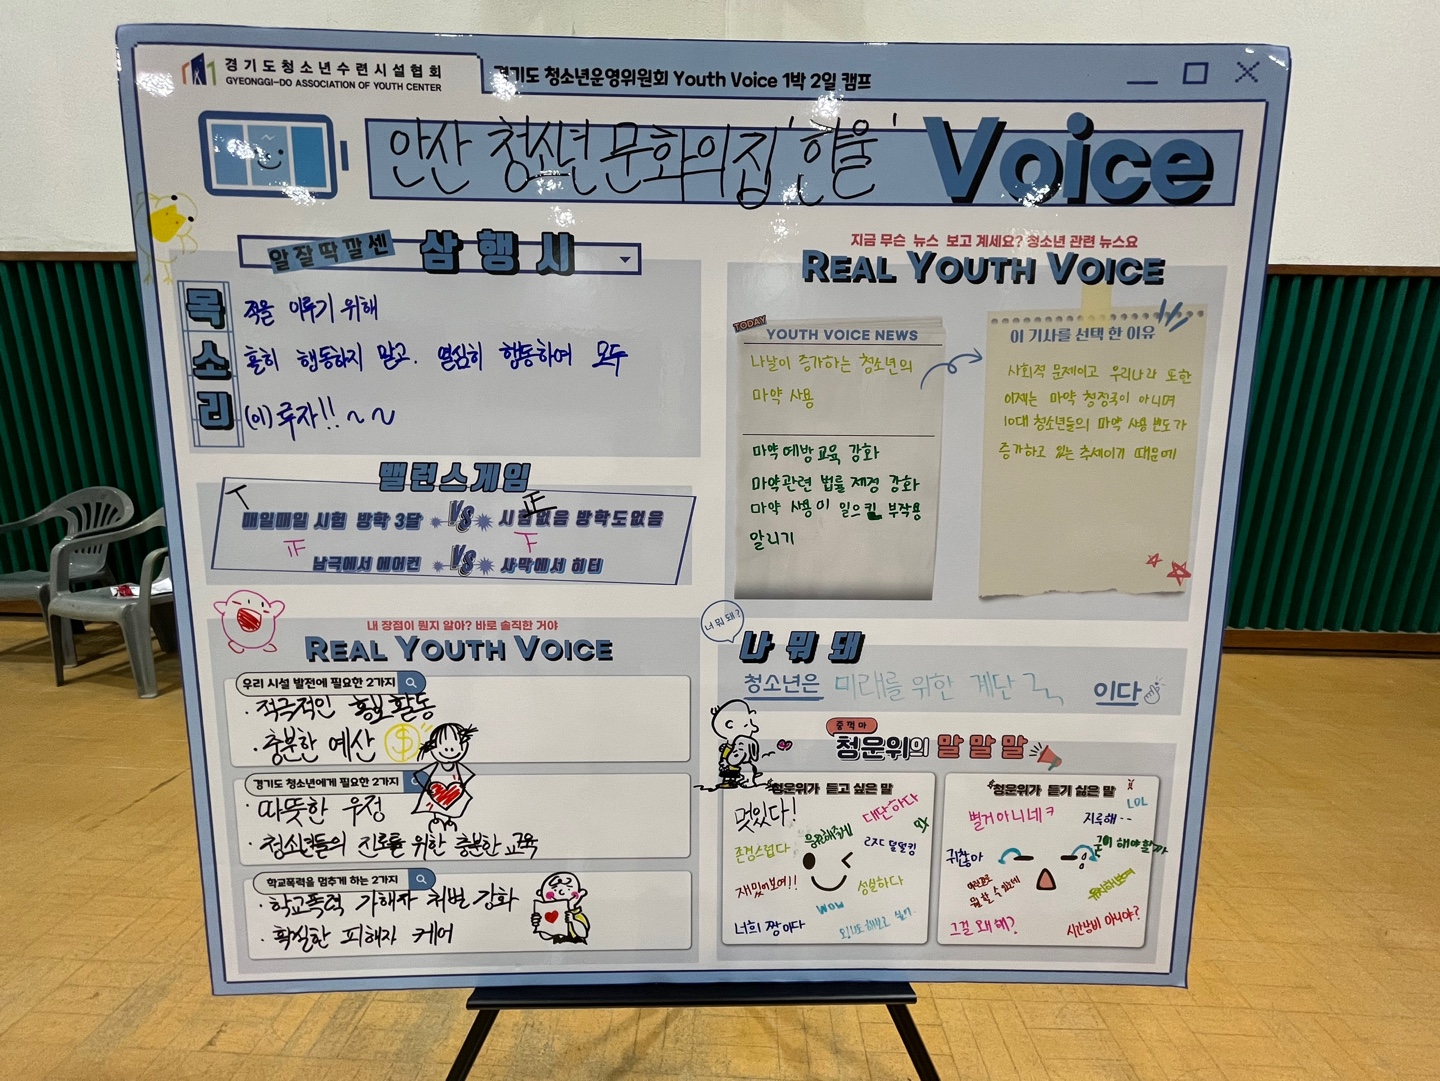 경기도청소년수련시설협회
GYEONGGI-DO ASSOCIATION OF YOUTH CENTER
경기도 청소년운영위원회 Youth Voice 1박 2일 캠프
안산 청소년문화의집 '한울' Voice
알잘딱깔센 삼행시
목 적을 이루기 위해
소 홀히 행동하지 말고. 열심히 행동하여 모두
리 (이)루자!!~~
밸런스게임
매일매일 시험 방학 3달 VS 시험없음 방학도없음
正
正
남극에서 에어컨 VS 사막에서 히터
내 장점이 뭔지 알아? 바로 솔직한 거야
REAL YOUTH VOICE
우리 시설 발전에 필요한 2가지
· 적극적인 홍보활동
· 충분한 예산 $
경기도 청소년에게 필요한 2가지
· 따뜻한 우정
· 청소년들의 진로를 위한 충분한 교육
학교폭력을 멈추게 하는 2가지
· 학교폭력 가해자 처벌 강화
· 확실한 피해자 케어
지금 무슨 뉴스 보고 계세요? 청소년 관련 뉴스요
REAL YOUTH VOICE
TODAY
YOUTH VOICE NEWS
나날이 증가하는 청소년의
마약 사용
마약예방교육 강화
마약관련 법률 제정 강화
마약 사용이 일으킬 부작용
알리기
이 기사를 선택 한 이유
사회적 문제이고 우리나라 또한
이제는 마약 청정국이 아니며
10대 청소년들의 마약 사용 빈도가
증가하고 있는 추세이기 때문에
너 뭐 돼?
나 뭐 돼
청소년은 미래를 위한 계단 이다
중꺾마
청운위의 말말말
청운위가 듣고 싶은 말
멋있다!
대단하다
존경스럽다
재밌어보여!!
성실하다
WOW
너희 짱이다
청운위가 듣기 싫은 말
별거아니네ㅋ
LOL
지루해--
귀찮아
굳이 해야할까
그걸 왜 해?
시간낭비 아니야?